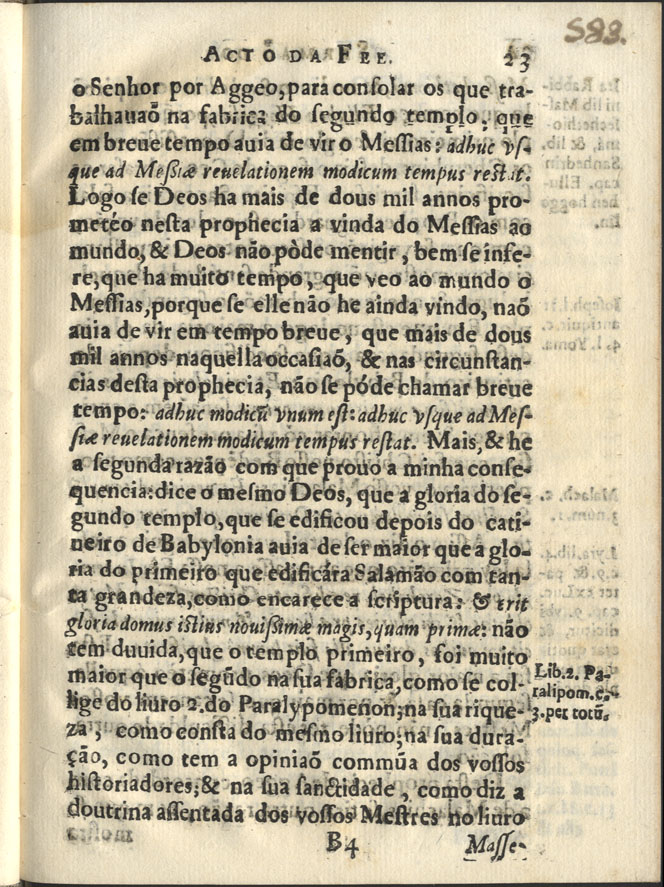 583.
ACTO DA FEE. 23
o Senhor por Aggeo, para conſolar os que tra-
balhauaõ na fabrica do ſegundo templo, que
em breue tempo auia de vir o Meſſias: adhuc vſ-
que ad Meſſiæ reuelationem modicum tempus reſtat.
Logo ſe Deos ha mais de dous mil annos pro-
metéo neſta prophecia a vinda do Meſſias ao
mundo, & Deos não pòde mentir, bem ſe infe-
re, que ha muito tempo, que veo ao mundo o
Meſſias, porque ſe elle não he ainda vindo, naõ
auia de vir em tempo breue, que mais de dous
mil annos naquella occaſiaõ, & nas circunſtan-
cias deſta prophecia, não ſe póde chamar breue
tempo: adhuc modicũ vnum eſt: adhuc vſque ad Meſ-
ſiæ reuelationem modicum tempus reſtat. Mais, & he
a ſegunda razão com que prouo a minha conſe-
quencia: dice o meſmo Deos, que a gloria do ſe-
gundo templo, que ſe edificou depois do cati-
ueiro de Babylonia auia de ſer maior que a glo-
ria do primeiro que edificára Salamão com tan-
ta grandeza, como encarece a ſcriptura: & erit
gloria domus iſtius nouiſſimæ magis, quam primæ: não
tem duuida, que o templo primeiro, foi muito
maior que o ſegũdo na ſua fabrica, como ſe col-
lige do liuro 2. do Paralypomenon; na ſua rique-
za, como conſta do meſmo liuro; na ſua dura-
ção, como tem a opiniaõ commũa dos voſſos
hiſtoriadores; & na ſua ſanctidade, como diz a
doutrina aſſentada dos voſſos Meſtres no liuro
Lib. 2. Pa-
ralipom. c.
3. per totũ.
B4 Maſſe-